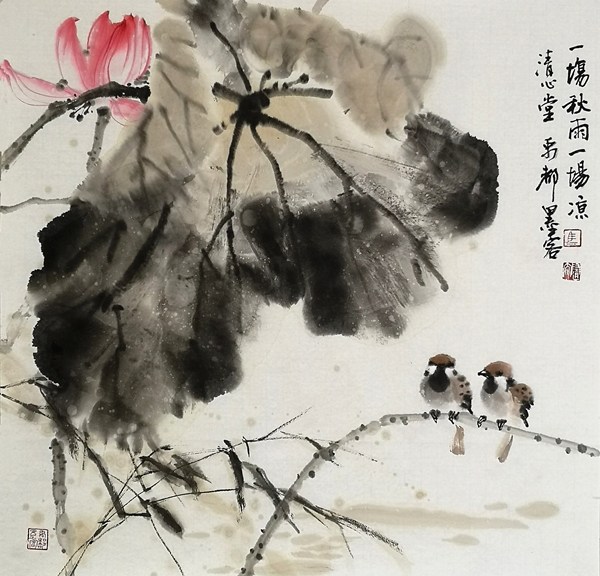 一場秋雨一場凉
清心堂 禹都墨客